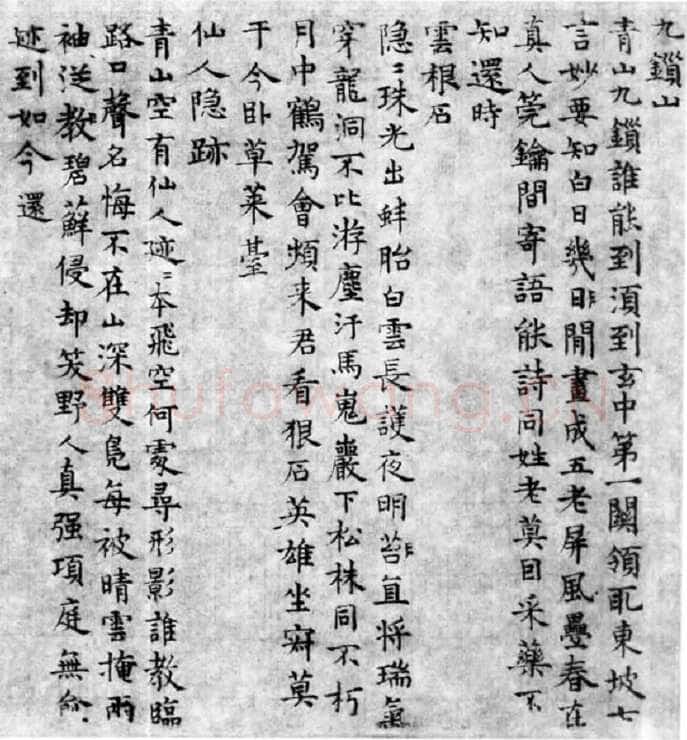 九鎖山
青山九鎖誰能到須到玄中第一關領取東坡七
言妙要知白日幾日非閒畫成五老屏風疊春在
真人筦鑰間寄語能詩同姓老莫因采藥不
知還時
雲根石
隐〻珠光出蚌胎白雲長護夜明苔非直將瑞氣
穿龍洞不比游塵汙馬嵬巖下松株同不朽
月中鶴駕會頻来君看狠石英雄坐寂莫
于今卧草萊臺
仙人隐跡
青山空有仙人迹〻本飛空何處尋形影誰教臨
路口聲名悔不在山深雙鳧每被晴雲掩兩
袖從教碧蘚侵却笑野人真强項庭無
迹到如今還
Shufawang.CN